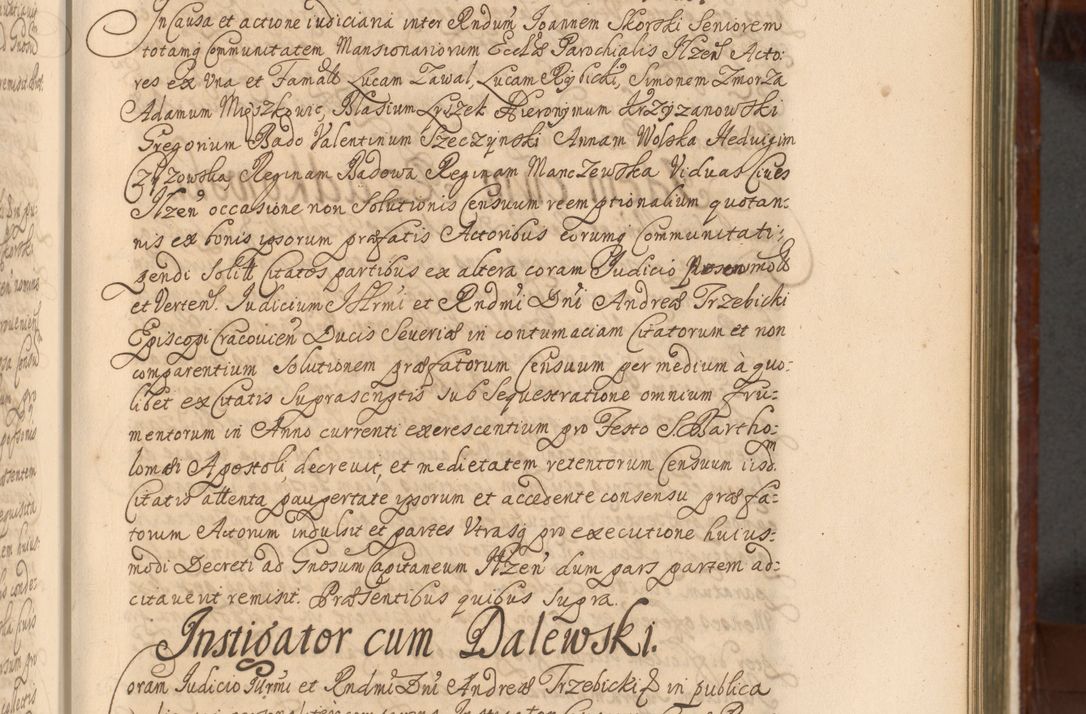 In Causa et actione iudiciaria inter Rndum Joannem Skorski Seniorem
totamq Communitatem Mansionariorum Eccl̃æ Parochialis Ilzeñ Acto:
res ex Una et Famatt Lucam Zawal, Lucam Rybicki, Simonem Zmorza
Adamum Myszkowic, Blasium Lyszek Hieronymum Krzyżanowski
Gregorium Bado Valentinum Szeczynski Annam Wolska Hedvigim
Czyżowska, Reginam Badowa Reginam Manczewska Viduas Cives
Ilzeñ occasione non Solutionis Censuum reemptionalium quotan:
nis ex bonis ipsorum præfatis Actoribus eorumq Communitati
pendi Solitt Citatos partibus ex altera coram Judicio
et Verteñ. Judicium Illrmi et Rndmi Dni Andreæ Trzebicki
Episcopi Cracovieñ Ducis Severiæ in contumaciam Citatorum et non
comparentium Solutionem præfatorum Censuum per medium à quo:
libet ex Citatis Suprascriptis sub Sequestratione omnium fru:
mentorum in Anno currenti excrescentium pro Festo S. Bartho:
lomæi Apostoli, decrevit, et medietatem retentorum Censuum iisdm
Citatis attenta paupertate ipsorum et accedente consensu præfa:
torum Actorum indulsit et partes Utrasq pro executione huius:
modi Decreti ad Gnosum Capitaneum Ilzeñ dum pars partem ad:
citaverit remisit. Præsentibus quibus Supra.
Instigator cum Dalewski.
Coram Judicio Illrmi et Rndmi Dni Andreæ Trzebicki & in publica